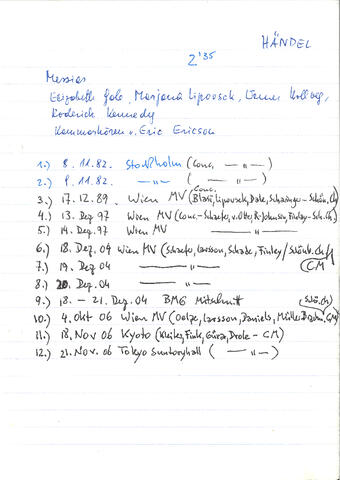 HÄNDEL
2'35
Messias
Elizabeth Gale, Marjana Lipovsek, Werner Hollweg,
Roderick Kennedy
Kammerkören v. Eric Ericson
1.) 8. 11. 82. Stockholm (Conc. — " —)
2.) 9. 11. 82 — " — ( — " — )
3.) 17. 12. 89. Wien MV (Conc. Blasi, Lipovsek, Dale, Scharinger - Schön. Ch)
4.) 13. Dez 97 Wien MV (Conc. - Schaefer, v. Otter, R. Johnson, Finley - Sch. Ch)
5.) 14. Dez 97 Wien MV
6.) 18. Dez 04 Wien MV (Schaefer, Larsson, Schade, Finley / Schönb. Ch)
CM
7.) 19. Dez 04 — " —
8.) 20. Dez 04 — " —
9.) 18. – 21. Dez. 04 BMG Mitschnitt (Schö. Ch)
10.) 4. Okt 06 Wien MV ( Larsson, Daniels, Müller CM)
11.) 18. Nov 06 Kyoto ( Fink, Güra, Drole - CM)
12.) 21. Nov. 06 Tokyo Suntoryhall ( — " — )